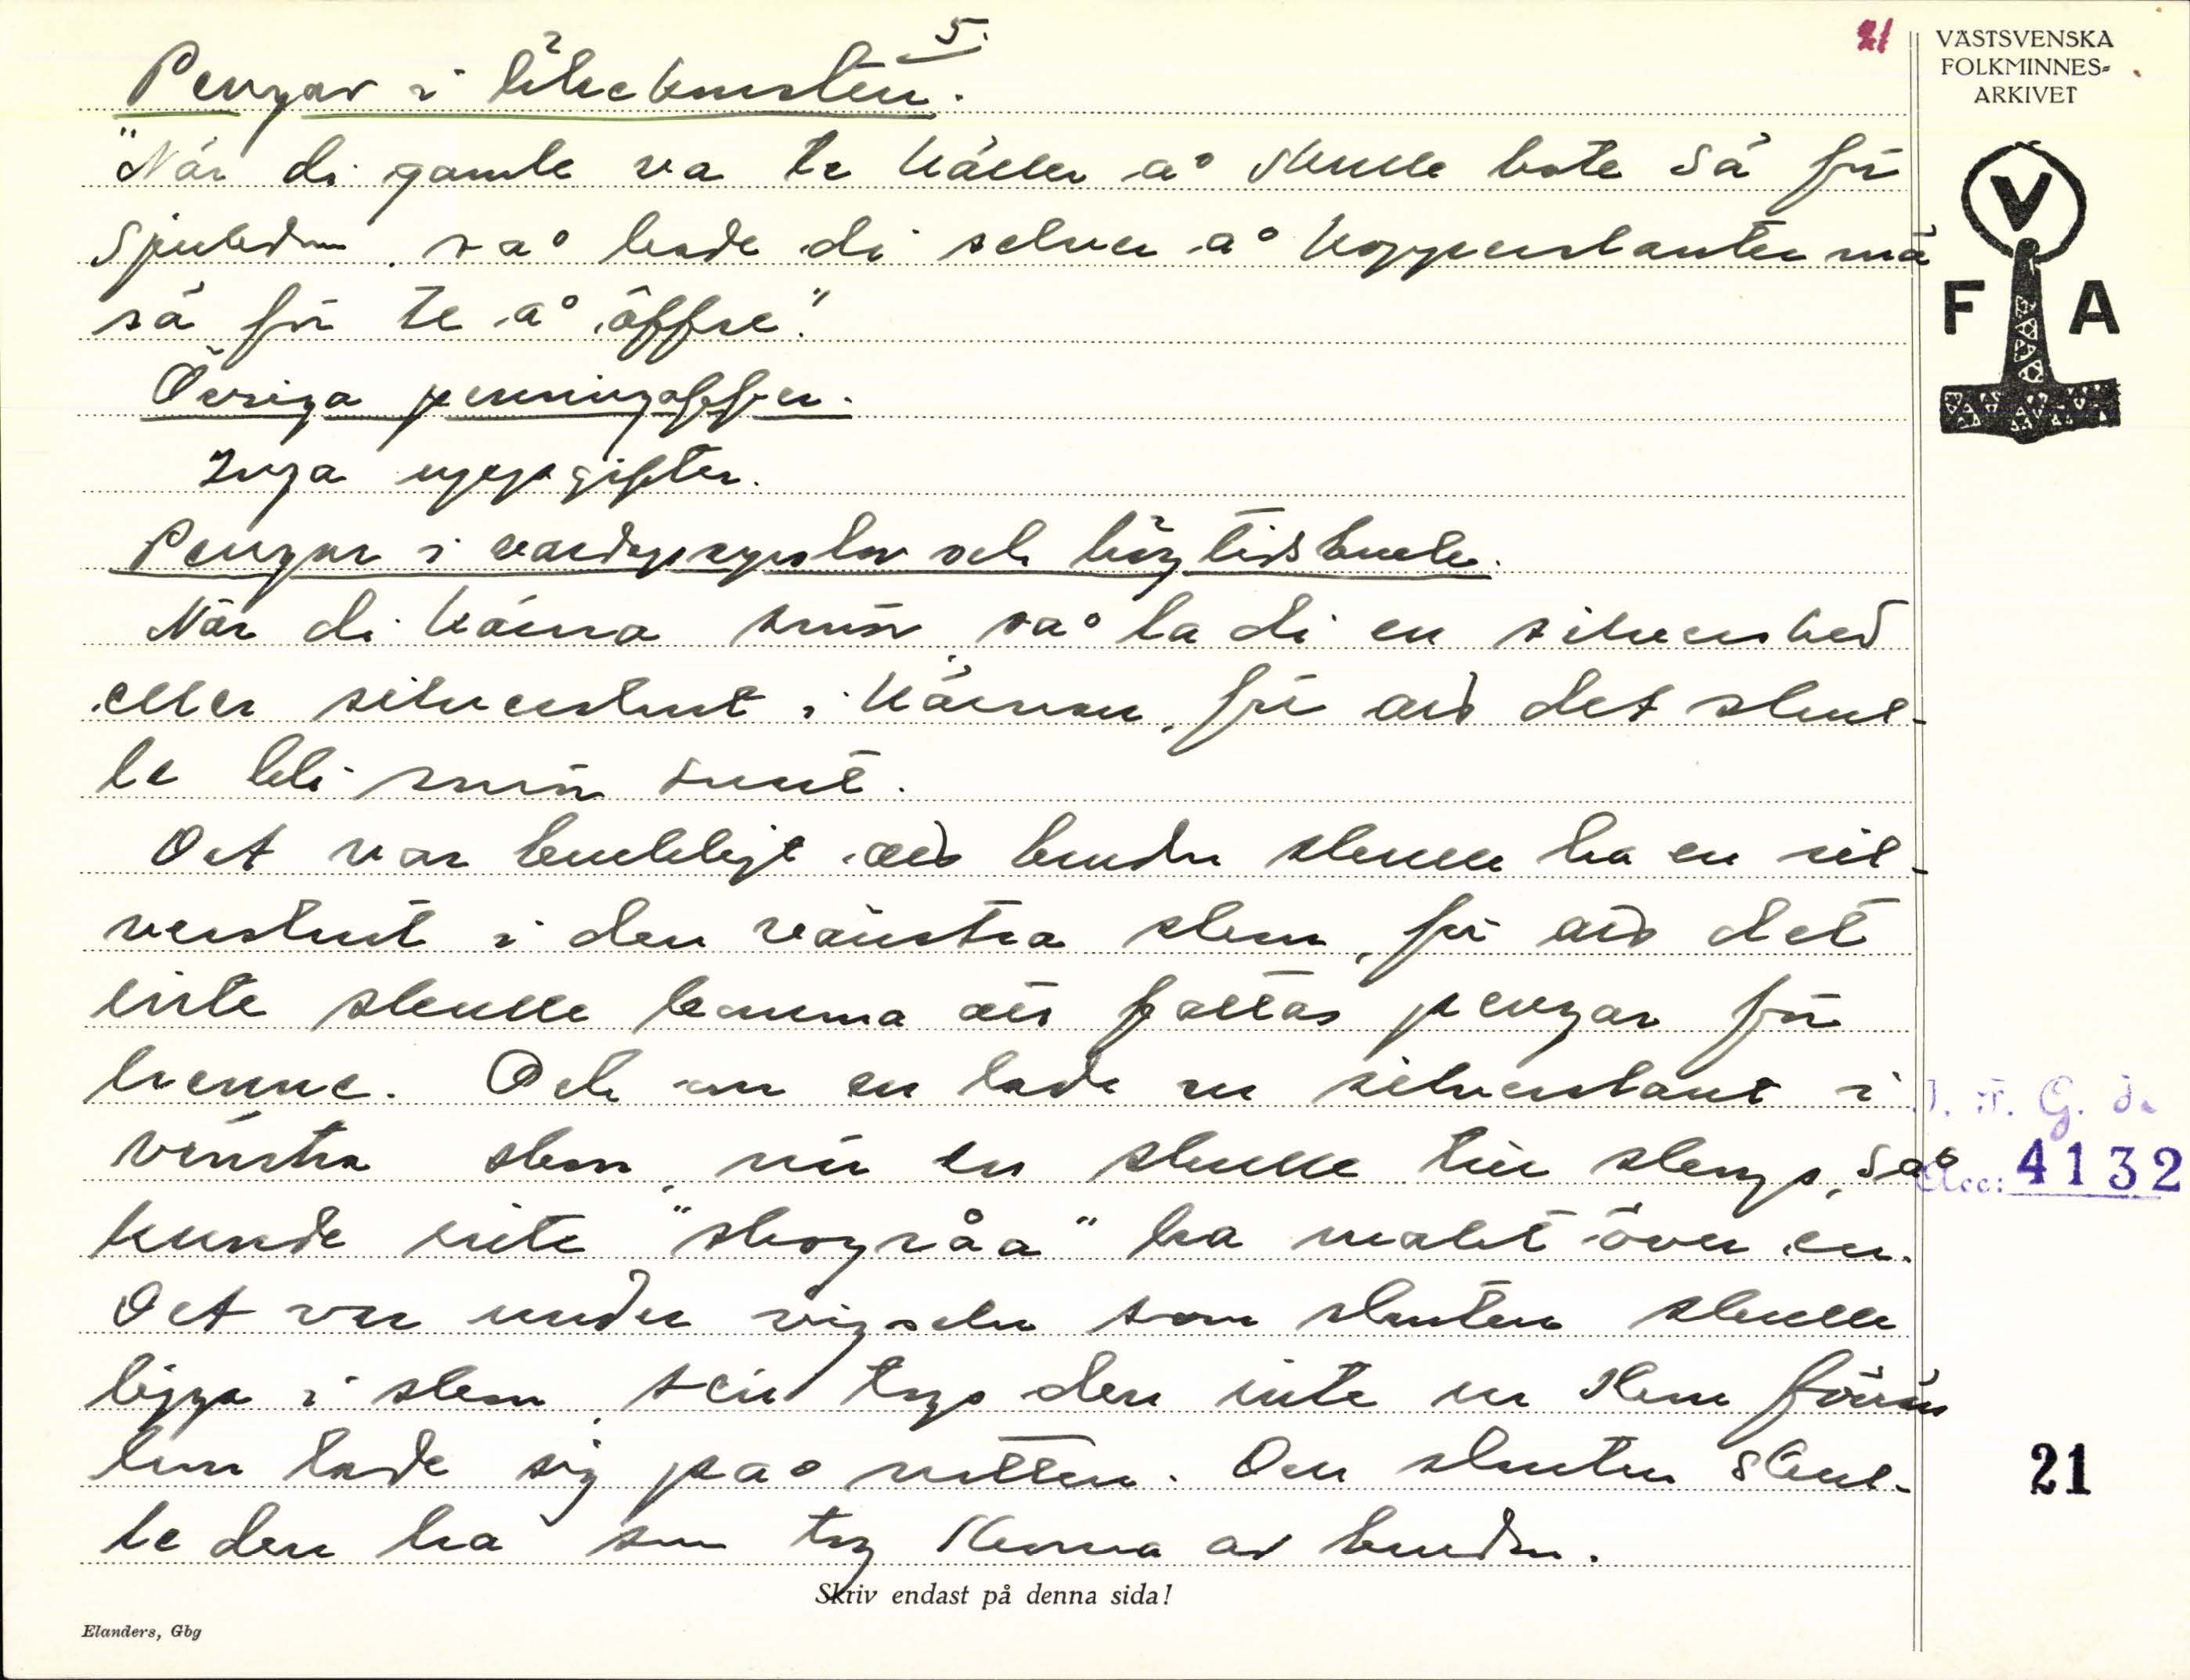 5.
21
Pengar i läkekonsten.
"När di gamle va te käller å skulle bote sä för
sjukdom, så hade di selver å kopperslanter mä
sä för te å öffre."
Övriga penningoffer.
Inga uppgifter.
Pengar i vardagssysslor och högtidsbruk.
När di kärna smör så la di en silversked
eller silverslant i kärnan, för att det skul-
le bli smör snart.
Det var brukligt att bruden skulle ha en sil-
verslant i den vänstra skon, för att det
inte skulle komma att fattas pengar för
henne. Och om en lade en silverslant i
vänstra skon, när en skulle till skogs, så
kunde inte "skogråa" ha makt över en.
Det var under vigseln som slanten skulle
ligga i skon, sen togs den inte ur skon förrän
hon lade sig på natten. Den slanten skul-
le den ha som tog skorna av bruden.
Skriv endast på denna sida!
Elanders, Gbg
VÄSTSVENSKA
FOLKMINNES-
ARKIVET
V
F A
I. F. G. s.
Acc: 4132
21